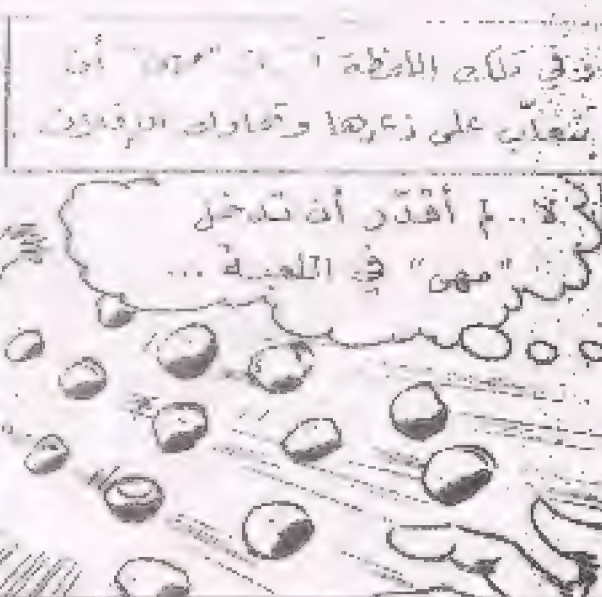 وفي تلك اللحظة "مهى" أن
تتغلب على ذعرها وتحاول
لا .. لم أقدر أن تدخل
"مهى" في اللعبة ...